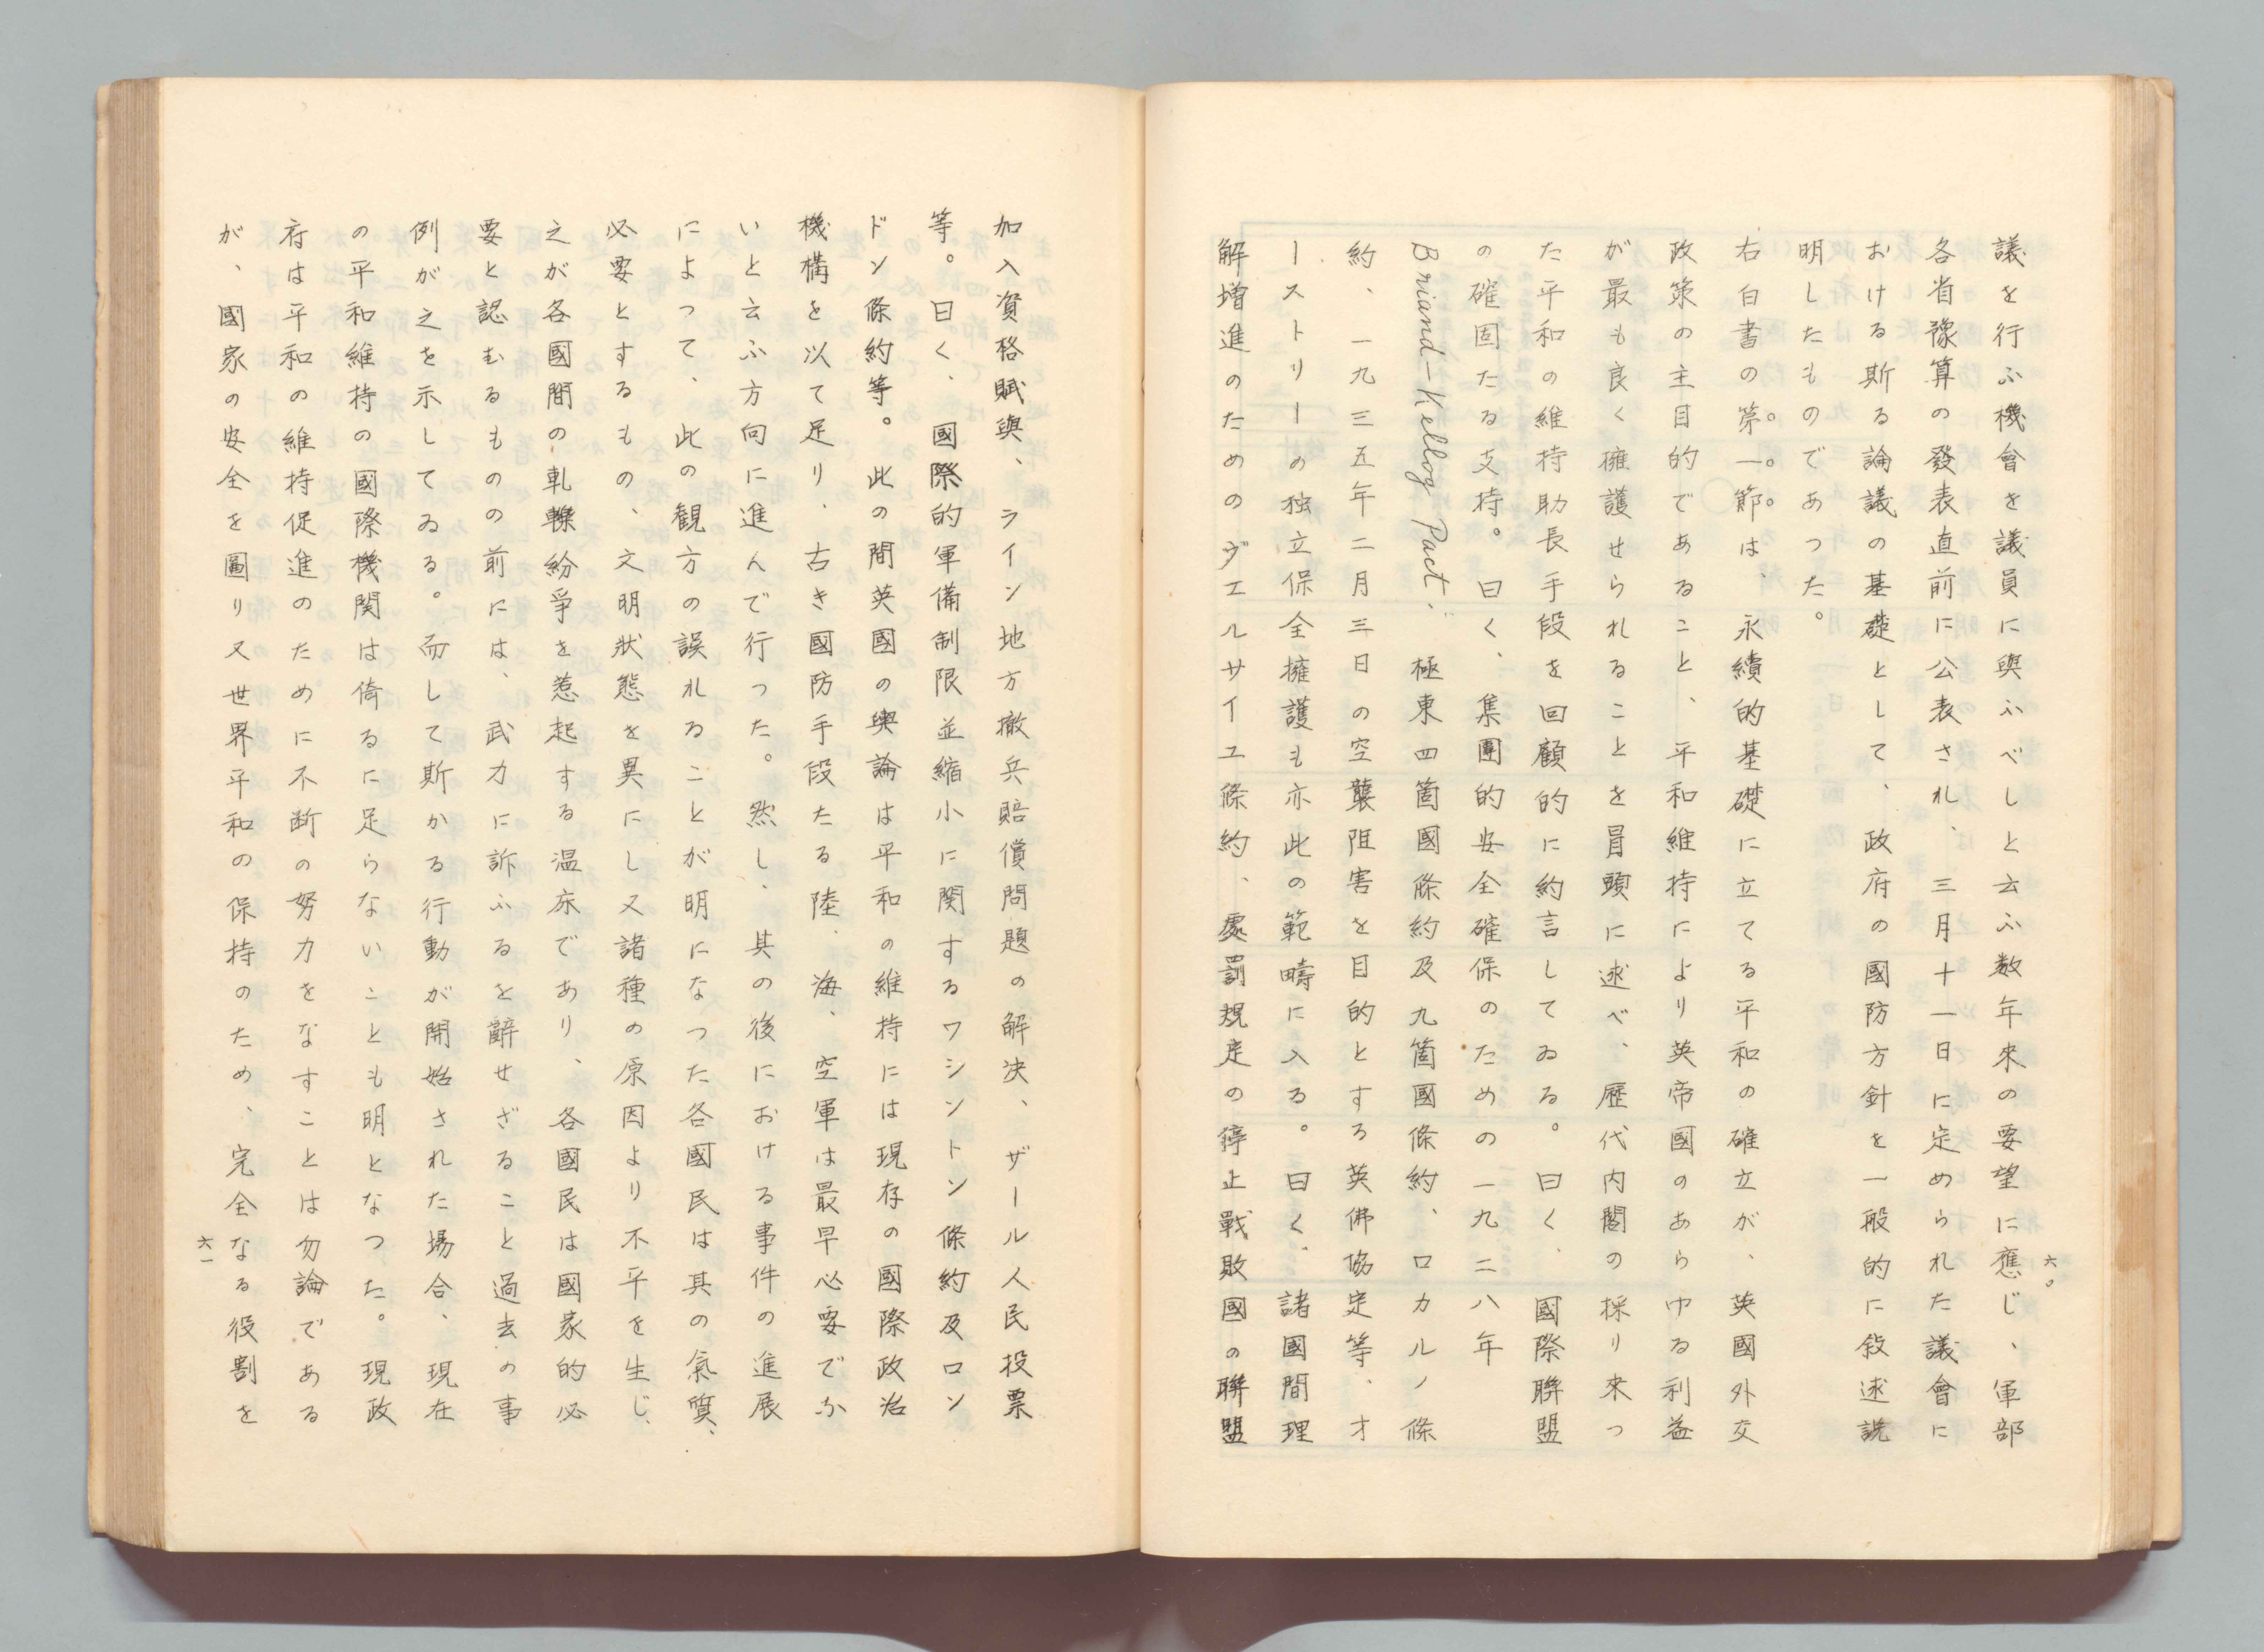 六〇
議を行ふ機會を議員に與ふべしと云ふ数年来の要望に應じ、軍部
各省豫算の發表直前に公表され、三月十一日に定められた議會に
おける斯る論議の基礎として、政府の國防方針を一般的に敍述説
明したものであつた。
右白書の第一節は、永續的基礎に立てる平和の確立が、英國外交
政策の主目的であること、平和維持により英帝國のあらゆる利益
が最も良く擁護せられることを冒頭に述べ、歴代内閣の採り来つ
た平和の維持助長手段を回顧的に約言してゐる。曰く、國際聯盟
の確固たる支持。曰く、集團的安全確保のための一九二八年
Briand-Kellog Pact. 極東四箇國條約及九箇國條約、ロカルノ條
約、一九三五年二月三日の空襲阻害を目的とする英佛協定等、オ
ーストリーの独立保全擁護も亦此の範疇に入る。曰く、諸國間理
解増進のためのヴエルサイユ條約、處罰規定の停止戰敗國の聯盟
加入資格賦與、ライン地方撤兵賠償問題の解决、ザール人民投票
等。曰く、國際的軍備制限並縮小に関するワシントン條約及ロン
ドン條約等。此の間英國の輿論は平和の維持には現存の國際政治
機構を以て足り、古き國防手段たる陸、海、空軍は最早必要でな
いと云ふ方向に進んで行つた。然し、其の後における事件の進展
によつて、此の観方の誤れることが明になつた各國民は其の氣質、
必要とするもの、文明狀態を異にし又諸種の原因より不平を生じ、
之が各國間の軋轢紛爭を惹起する温床であり、各國民は國家的必
要と認むるものの前には、武力に訴ふるを辭せざること過去の事
例が之を示してゐる。而して斯かる行動が開始された場合、現在
の平和維持の國際機関は倚るに足らないことも明となつた。現政
府は平和の維持促進のために不断の努力をなすことは勿論である
が、國家の安全を圖り又世界平和の保持のため、完全なる役割を
六一